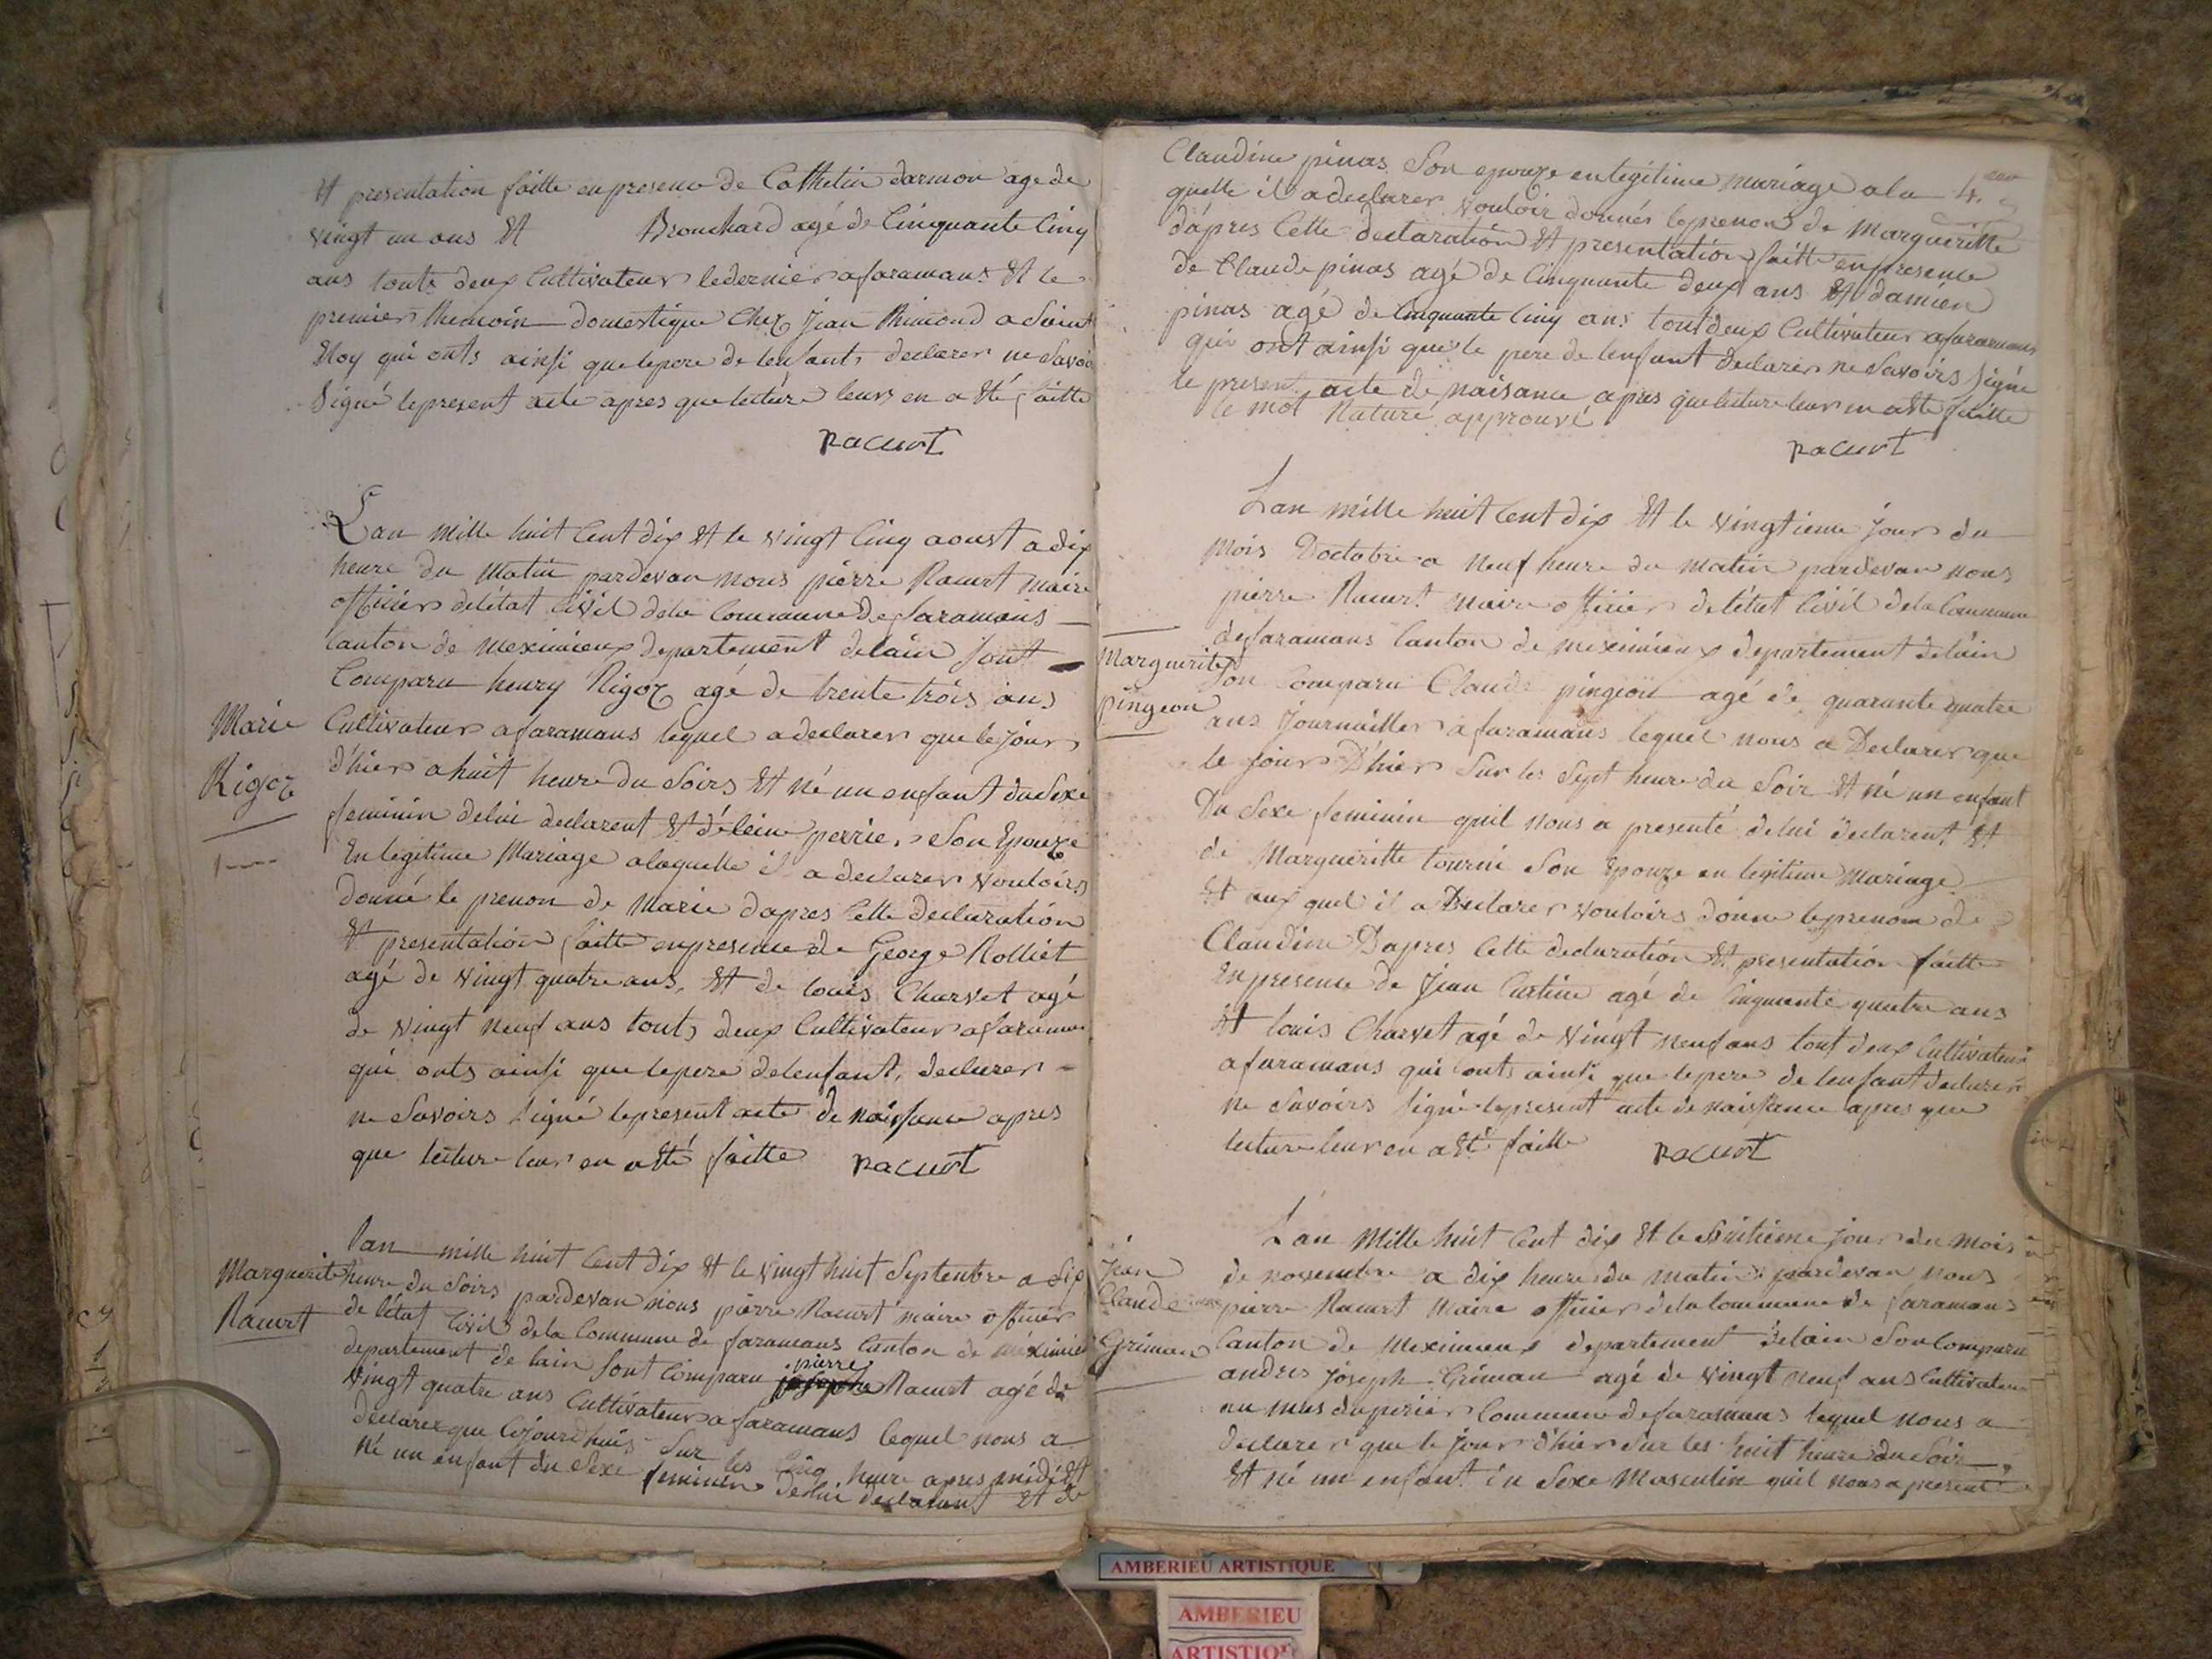 Et presentation faitte en presence de Cathelin darmon age de
vingt un ans Et Brouchard agé de Cinquante Cinq
ans touts deux Cultivateur le dernier a faramans Et le
premier themoin domestique Chez Jean thimond a Saint
Eloy qui onts ainsi que le pere de lenfants declarer ne Savoir
Signé le present acte apres que lecture leurs en a Eté faitte
Racurt
Lan mille huit Cent dix Et le vingt Cinq aoust a dix
heure du Matin pardevan nous pierre Racurt maire
officier de létat Civil de la Commune de faramans
Canton de meximieux departement delain Sont
Comparu henry Rigoz agé de trente trois ans
Marie
Rigoz
Cultivateur a faramans lequel a declarer que le jour
d'hier a huit heure du Soirs Et né un enfant du Sexe
feminin delui declarent Et d'eleine perrie, Son Epouze
En legitime Mariage a laquelle il a declarer vouloirs
donné le prenon de Marie dapres Cette declaration
Et presentation faitte en presence de George Rolliet
agé de vingt quatre ans, Et de louis Charvet agé
de vingt neuf ans touts deux Cultivateur a faramans
qui onts ainsi que le pere de lenfant, declarer
ne Savoirs Signé le present acte de naissance apres
que lecture leur en a Eté faitte Racurt
Marguerite
Racurt
lan mille huit Cent dix Et le vingt huit Septenbre a Six
heure du Soirs pardevan nous pierre Racurt maire officier
de létat Civil de la Commune de faramans Canton de méximieu
departement de lain Sont Comparu pierre Racurt agé de
vingt quatre ans Cultivateur a faramans lequel nous a
declarer que Cejourdhuis Sur les Cinq heure apres midi Et
né un enfant du Sexe feminin de lui declarent Et de
Claudine pinas Son epouze en legitime mariage a la
quelle il a declarer vouloir donnés le prenon de Margueritte
dápres Cette declaration Et presentation faitte en presence
de Claude pinas agé de Cinquante deux ans Et damien
pinas agé de Cinquante Cinq ans tout deux Cultivateur a faramans
qui ont ainsi que le pere de lenfant declarer ne Savoirs Signé
le present acte de naisance apres que lecture leur en a Eté faitte
le mot Naturé approuvé
Racurt
Lan mille huit Cent dix Et le vingtieme jour du
mois Doctobre a neuf heure du matin pardevan nous
pierre Racurt maire officier de létat Civil de la Commune
de faramans Canton de meximieux departement delain
Marguerite
pingeon
Son Comparu Claude pingeon agé de quarante quatre
ans Journaillier a faramans lequel nous a Declarer que
le jour D'hier Sur les Sept heure du Soir Et né un enfant
Du Sexe feminin quil nous a presenté delui declarent Et
de Margueritte tournie Son Epouze en legitime Mariage
Et aux quel il a Declarer vouloirs donne le prenom de
Claudine Dapres Cette declaration Et presentation faitte
En presence de Jean Catine agé de Cinquante quatre ans
Et louis Charvet agé de vingt neuf ans tout deux Cultivateur
a faramans qui onts ainsi que le pere de lenfant declarer
ne Savoirs Signé le present acte de naissance apres que
lecture leur en a Eté faitte Racurt
Jean
Claude
Griman
Lan Mille huit Cent dix Et le huitieme jour du mois
de novembre a dix heure du matin pardevan nous
pierre Racurt Maire officier de la Commune de faramans
Canton de Meximieux departement delain Son Comparu
andres Joseph Griman agé de vingt neuf ans Cultivateur
au mas du perier Commune de faramans lequel nous a
declarer que le jour d'hier Sur les huit heure du Soir
Et né un enfant du Sexe Masculin quil nous a presenté
AMBERIEU ARTISTIQUE
AMBERIEU
ARTISTIQUE